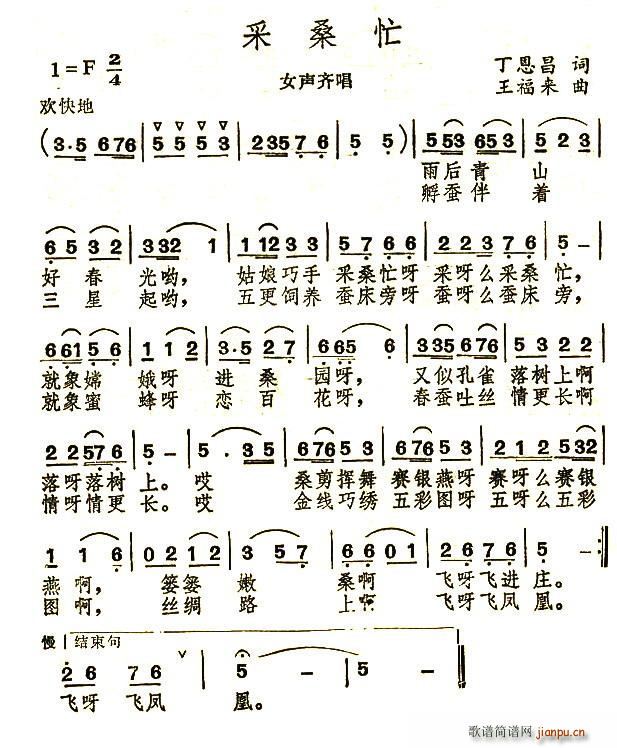 采桑忙
1=F 2/4
女声齐唱
丁恩昌 词
王福来 曲
欢快地
(3·5 676 | 5 5 5 3 | 235 7 6 | 5 5) | 553 653 | 5 2 3 |
雨后青山
孵蚕伴着
6 5 3 2 | 332 1 | 1 12 3 3 | 5 7 6 6 | 2 2 3 7 6 | 5 - |
好春光哟, 姑娘巧手 采桑忙呀 采呀么采桑 忙,
三星起哟, 五更饲养 蚕床旁呀 蚕呀么蚕床 旁,
6 61 5 6 | 1 1 2 | 3·5 2 7 | 6 65 | 335 676 | 5 3 2 2 |
就象嫦娥呀 进桑园呀, 又似孔雀 落树上啊
就象蜜蜂呀 恋百花呀, 春蚕吐丝 情更长啊
2 2 57 6 | 5 - | 5. 3 5 | 676 5 3 | 676 5 3 | 2 1 2 5 32 |
落呀落树上。哎 桑剪挥舞 赛银燕呀 赛呀么赛银
情呀情更长。哎 金线巧绣 五彩图呀 五呀么五彩
1 1 6 | 0 2 1 2 | 3 5 7 | 6 6 0 1 | 2 6 7 6 | 5 - :||
燕啊, 篓篓嫩桑啊 飞呀飞进庄。
图啊, 丝绸路上啊 飞呀飞凤凰。
慢 结束句
2 6 7 6 | 5 - | 5 - ||
飞呀 飞凤 凰。
歌谱简谱网
jianpu.cn